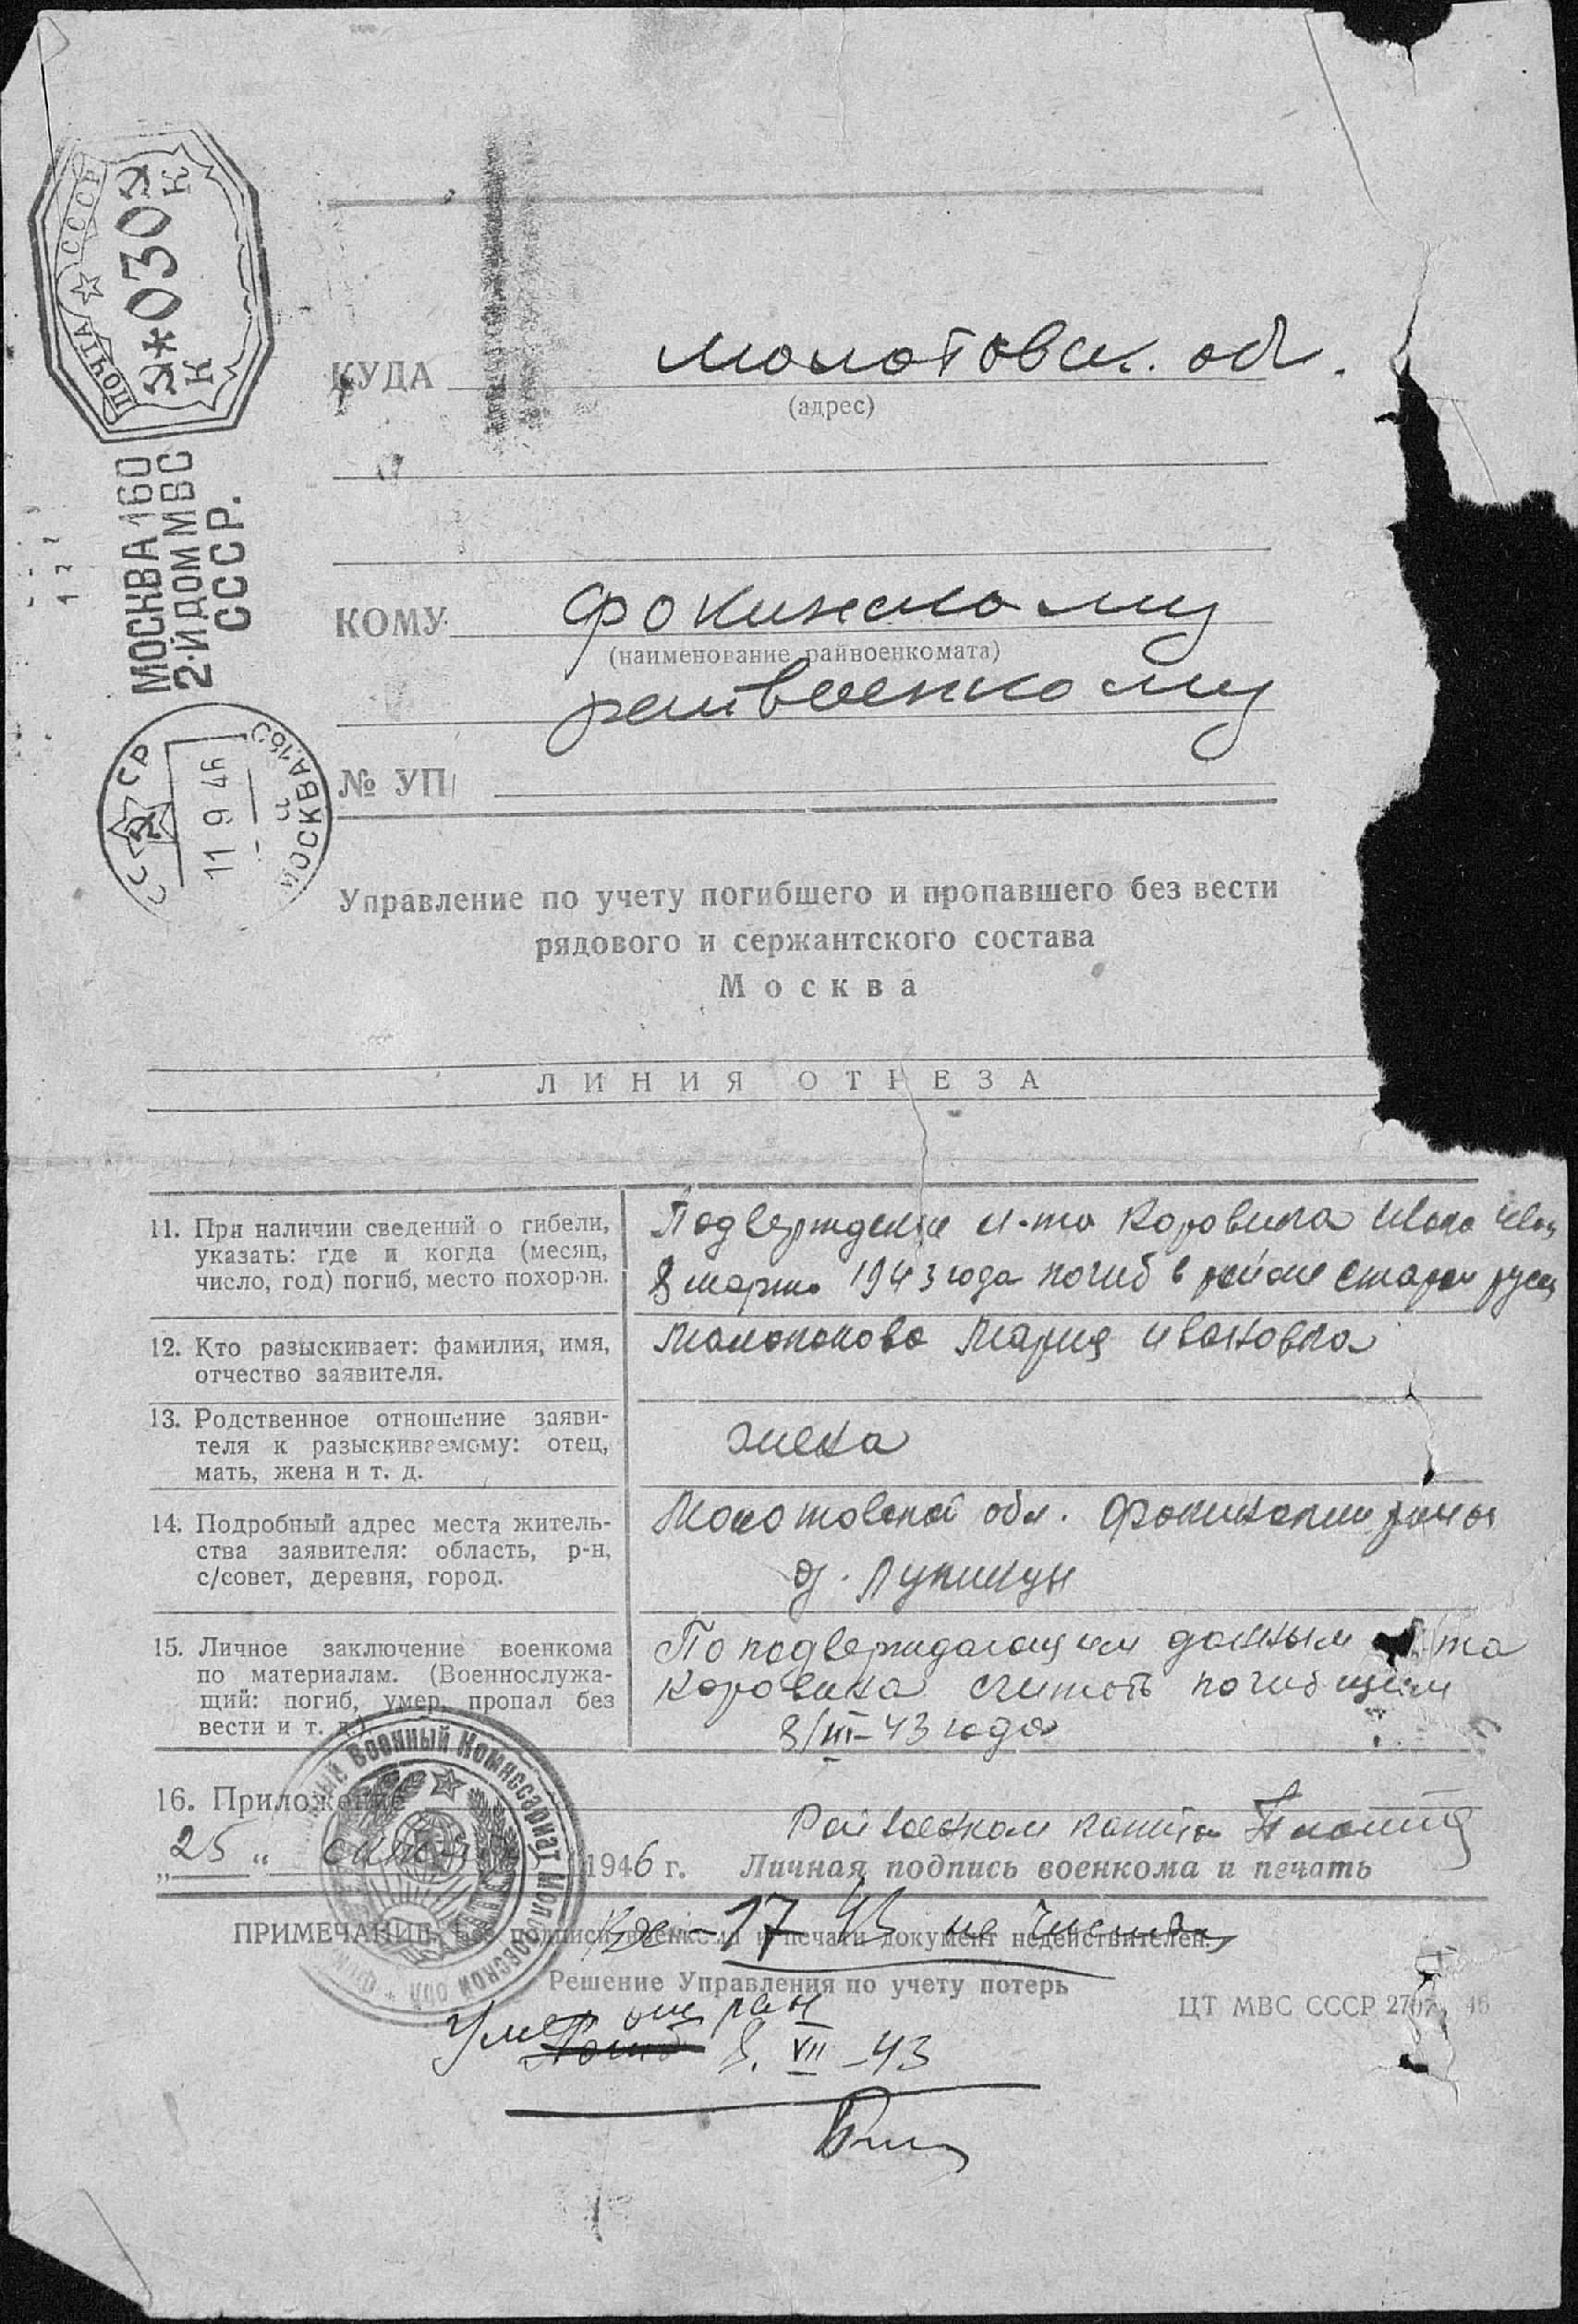 ПОЧТА СССР
К *030 К
МОСКВА 160
2-Й ДОМ МВС
СССР.
СССР
11 9 46
МОСКВА 160
КУДА Молотовск. обл.
(адрес)
КОМУ Фокинскому
(наименование райвоенкомата)
райвоенкому
№ УП
Управление по учету погибшего и пропавшего без вести
рядового и сержантского состава
Москва
ЛИНИЯ ОТРЕЗА
11. При наличии сведений о гибели,
указать: где и когда (месяц,
число, год) погиб, место похорон.
Подверждение Коровина
8 марта 1943 года погиб в районе старой
12. Кто разыскивает: фамилия, имя,
отчество заявителя.
Мария Ивановна
13. Родственное отношение заяви-
теля к разыскиваемому: отец,
мать, жена и т. д.
жена
14. Подробный адрес места житель-
ства заявителя: область, р-н,
с/совет, деревня, город.
Молотовской обл. Фокинский
д.
15. Личное заключение военкома
по материалам. (Военнослужа-
щий: погиб, умер, пропал без
вести и т. д.)
По подверждающим данным
Коровина считать погибщим
8/III-43 года
16. Приложение
Райвоенком
„25“ 1946 г. Личная подпись военкома и печать
Военный Комиссариат Молотовской обл
ПРИМЕЧАНИЕ. Без подписи военкома и печати документ недействителен.
17 не числится
Решение Управления по учету потерь
ЦТ МВС СССР 2707 46
Умер от ран
8. VII -43